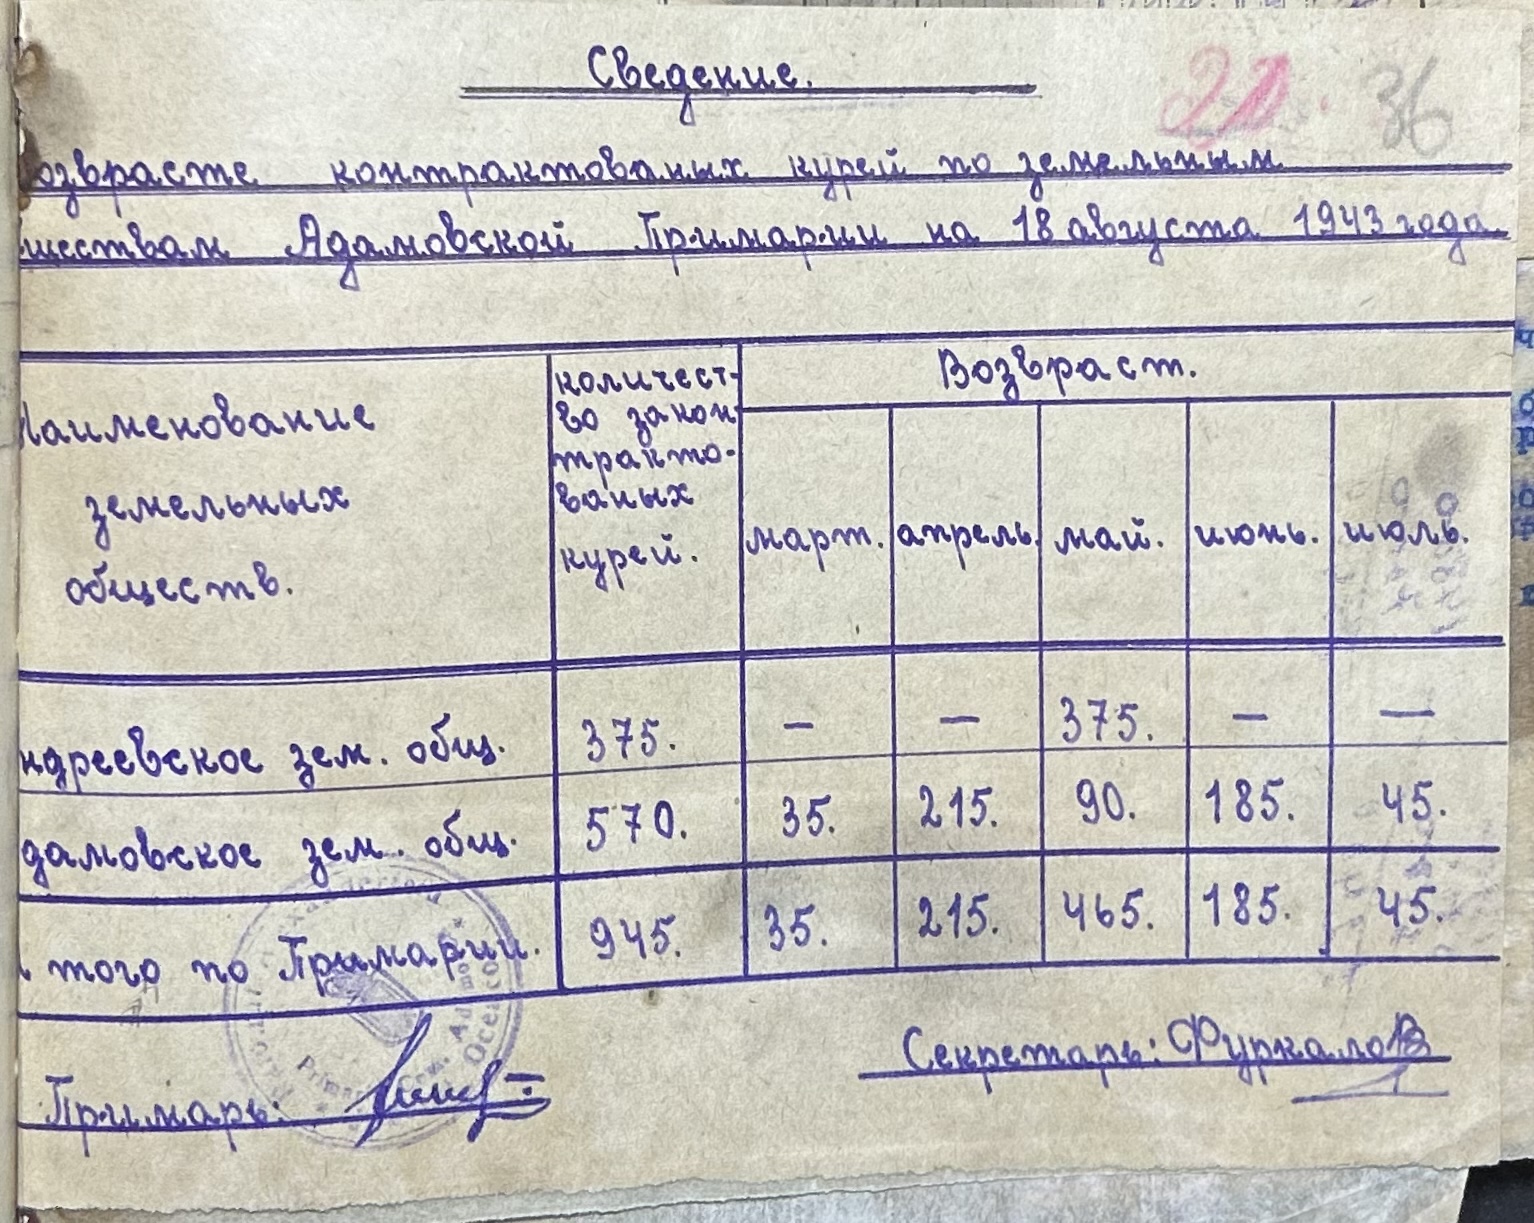 Сведение.
21. 36
озврасте контрактованых курей по земельным
ществам Адамовской Примарии на 18 августа 1943 года
Наименование земельных обществ. количест-во закон трактo-ваных курей. Возвраст.
март. апрель. май. июнь. июль.
ндреевское зем. общ. 375. — — 375. — —
дамовское зем. общ. 570. 35. 215. 90. 185. 45.
того по Примарии. 945. 35. 215. 465. 185. 45.
Секретарь: Фуркалов
Примарь: